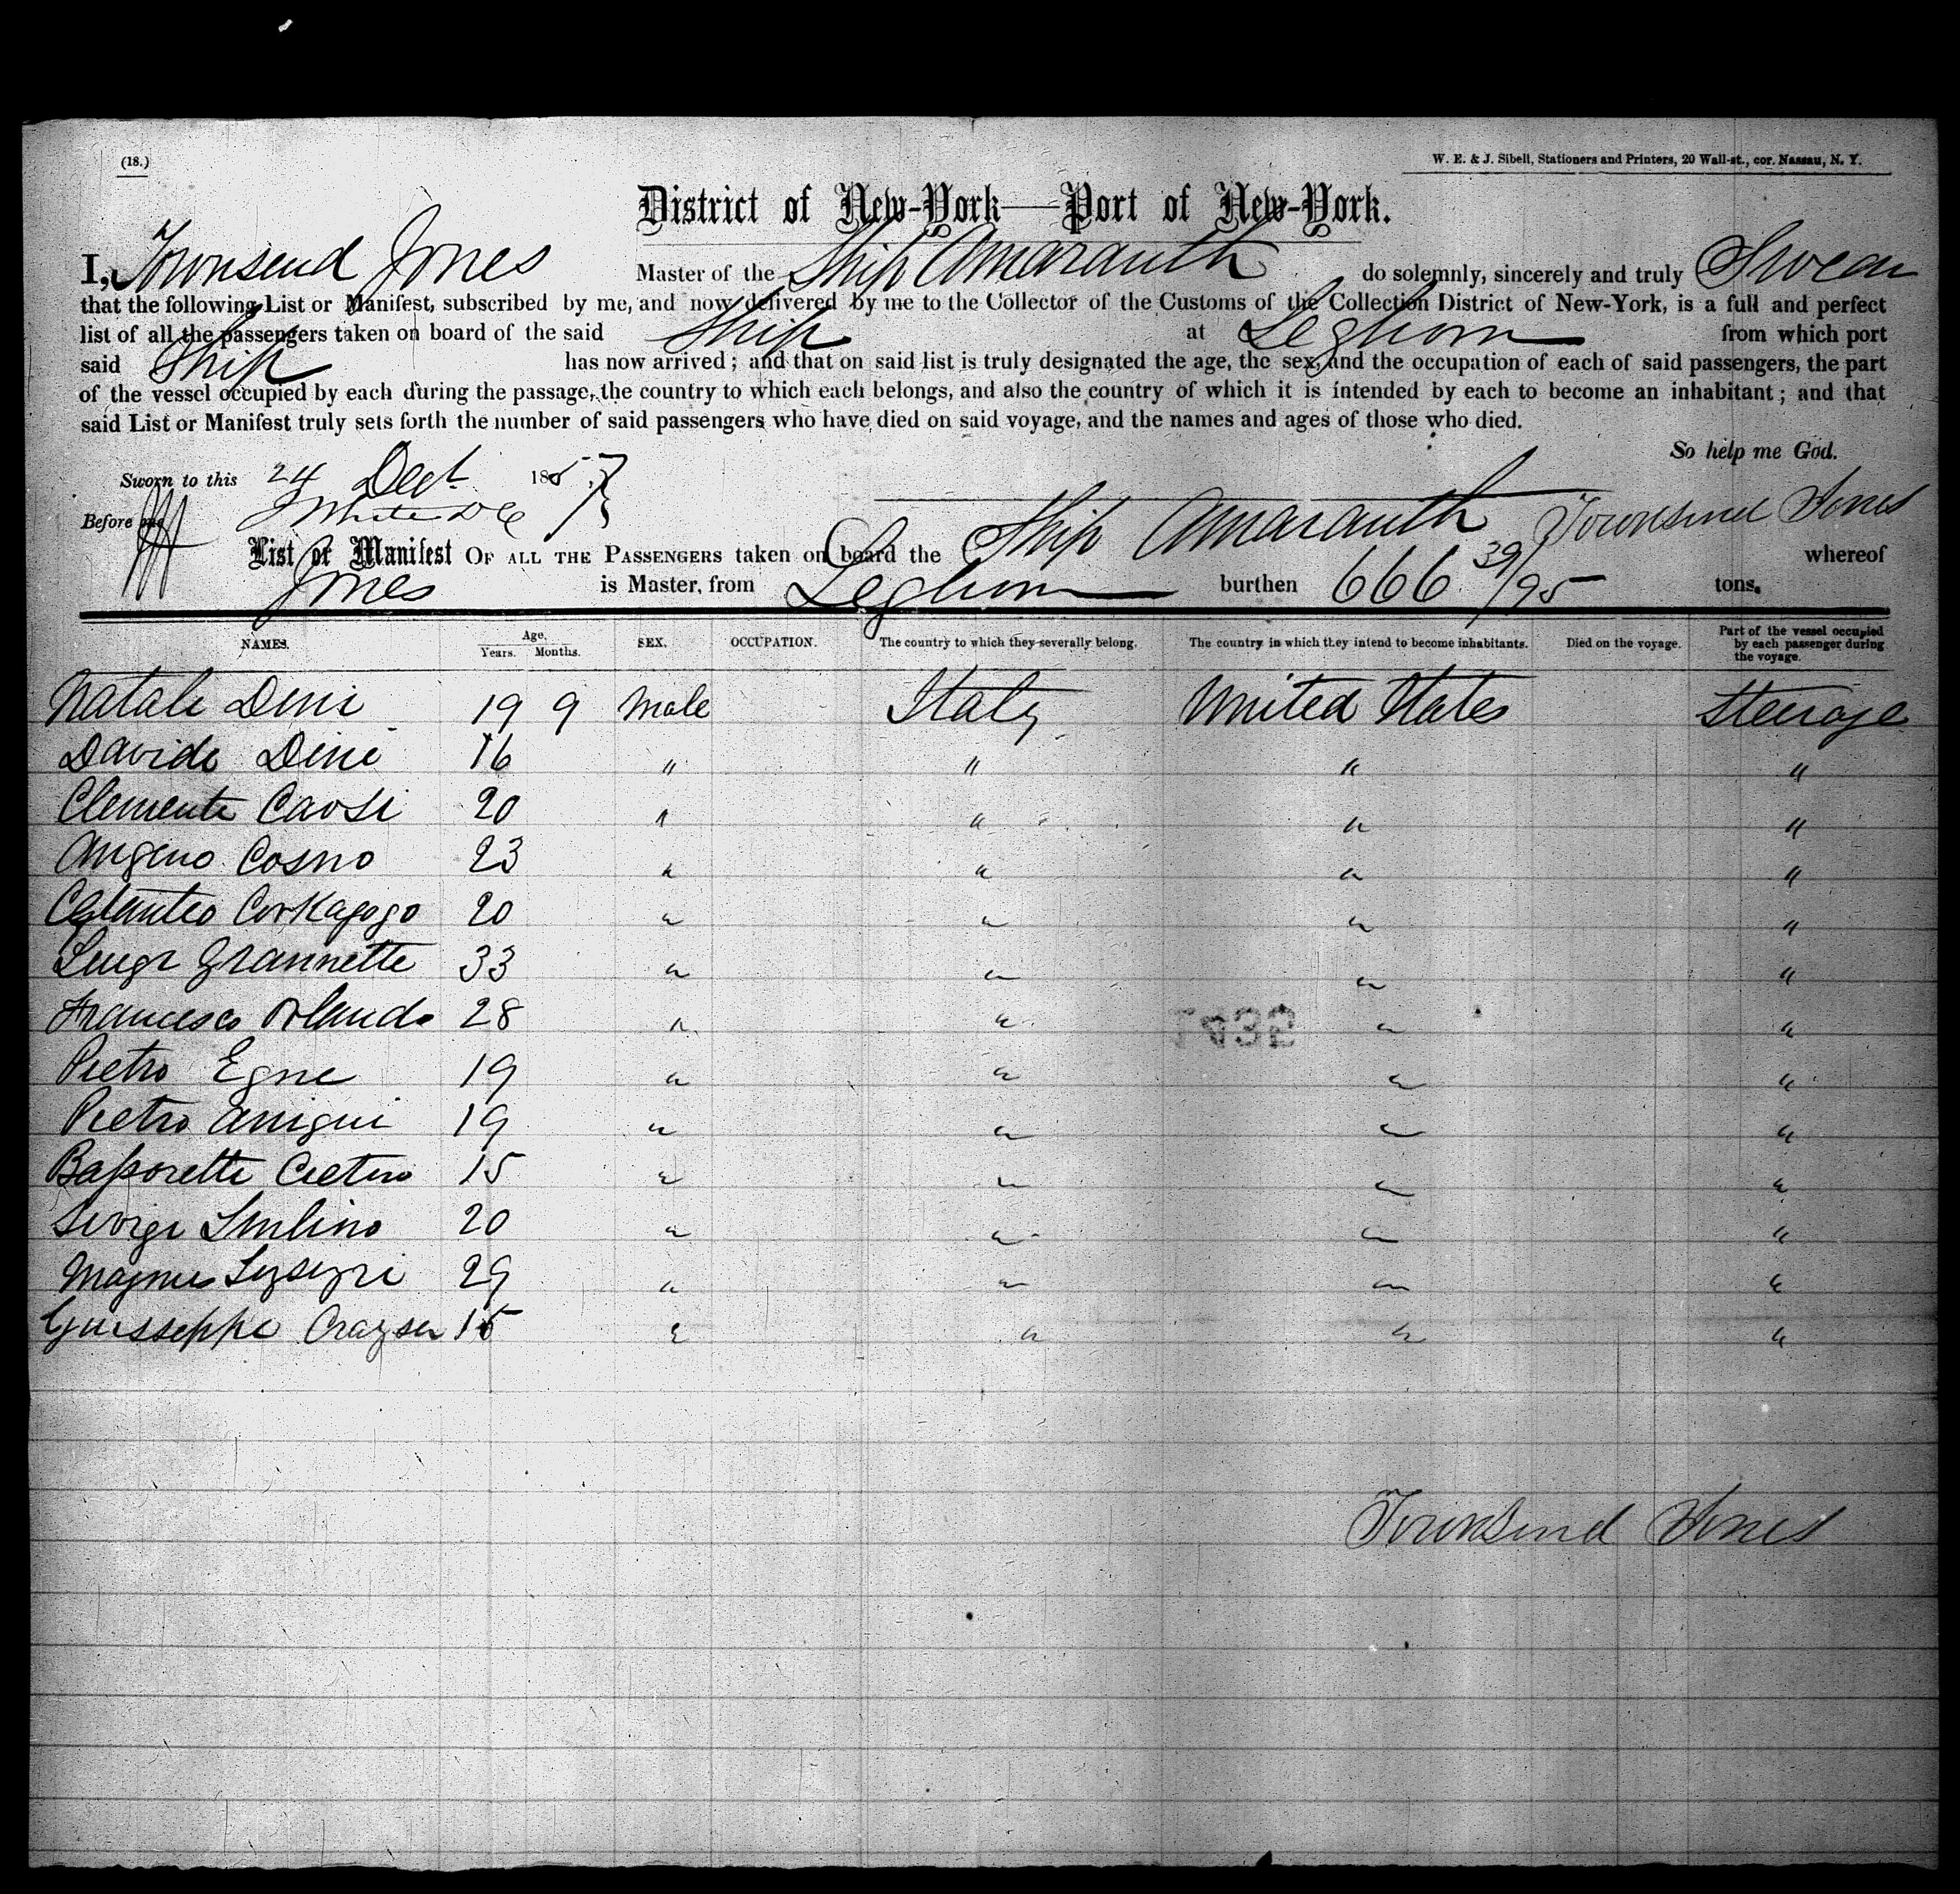 (18.)
W. E. & J. Sibell, Stationers and Printers, 20 Wall-st., cor. Nassau, N. Y.
District of New-York—Port of New-York.
I, Townsend Jones Master of the Ship Amaranth do solemnly, sincerely and truly Swear
that the following List or Manifest, subscribed by me, and now delivered by me to the Collector of the Customs of the Collection District of New-York, is a full and perfect
list of all the passengers taken on board of the said Ship at Leghorn from which port
said Ship has now arrived; and that on said list is truly designated the age, the sex, and the occupation of each of said passengers, the part
of the vessel occupied by each during the passage, the country to which each belongs, and also the country of which it is intended by each to become an inhabitant; and that
said List or Manifest truly sets forth the number of said passengers who have died on said voyage, and the names and ages of those who died.
So help me God.
Sworn to this 24 185
Before me Townsend Jones
List or Manifest OF ALL THE PASSENGERS taken on board the Ship Amaranth whereof
Jones is Master, from Leghorn burthen 666 39/95 tons.
NAMES. Age, Years. Months. SEX. OCCUPATION. The country to which they severally belong. The country in which they intend to become inhabitants. Died on the voyage. Part of the vessel occupied by each passenger during the voyage.
Natale Dini 19 9 Male Italy United States Steerage
Davide Dini 16 " " " "
Clemente 20 " " " "
Angeno Cosno 23 " " " "
20 " " " "
Luigi Grannette 33 " " " "
Francesco Orlando 28 " " " "
Pietro Egne 19 " " " "
Pietro Anigui 19 " " " "
15 " " " "
20 " " " "
29 " " " "
Guisseppe 15 " " " "
Townsend Jones